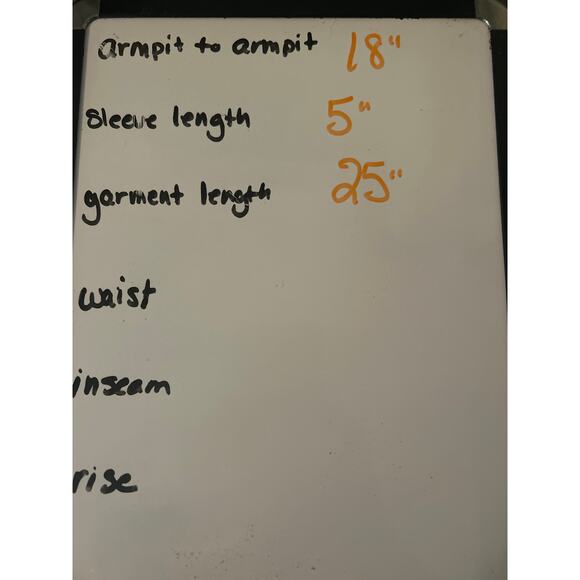 armpit to armpit 18"
sleeve length 5"
garment length 25"
waist
inseam
rise